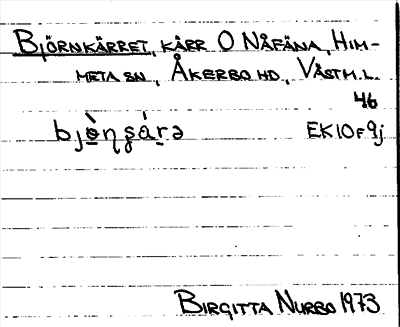 Björnkärret, kärr O Nåfäna, Him-
meta sn, Åkerbo hd, Västm.l.
46
bjɵ̀ṇʂára
EK10F9j
Birgitta Nurbo 1973